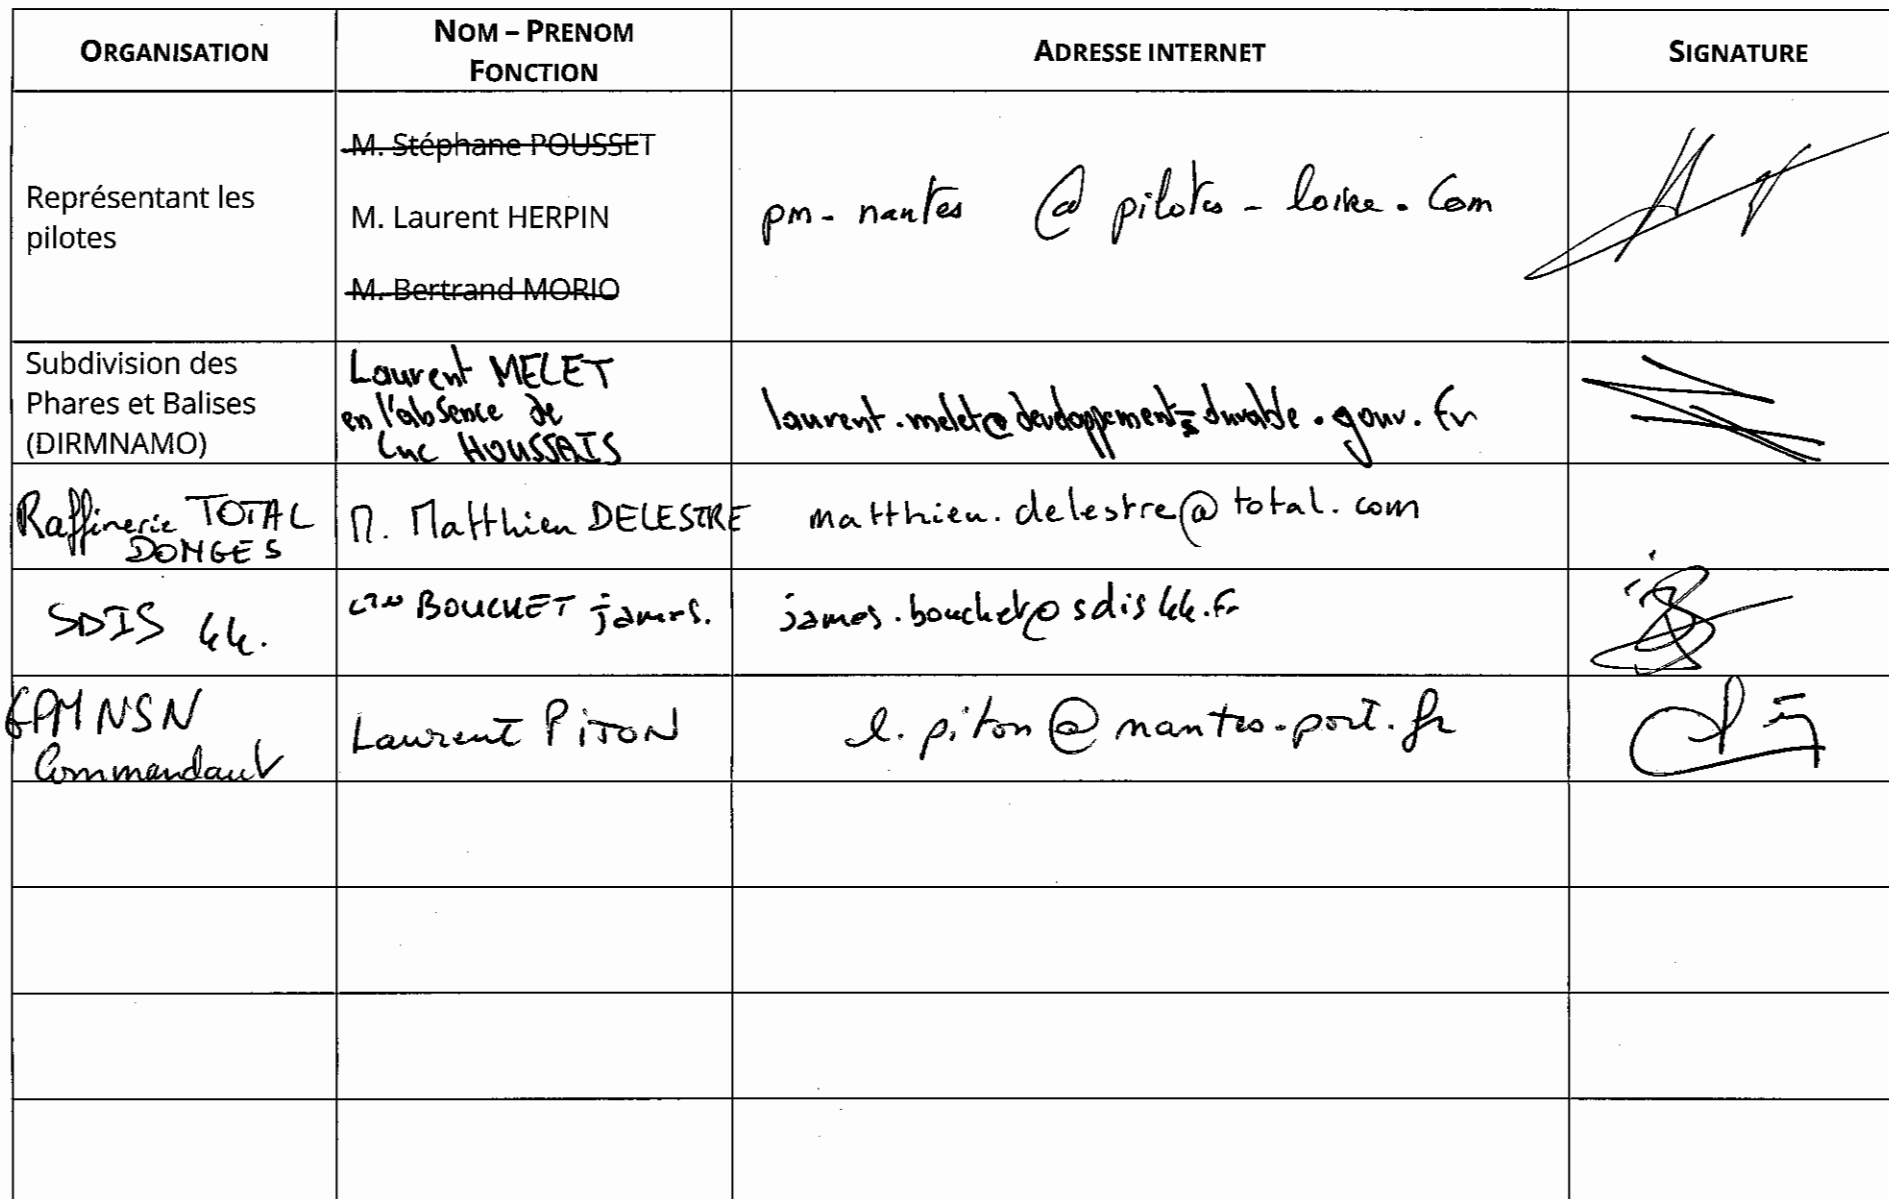 ORGANISATION
NOM – PRENOM
FONCTION
ADRESSE INTERNET
SIGNATURE
Représentant les
pilotes
M. Stéphane POUSSET
M. Laurent HERPIN
M. Bertrand MORIO
pm-nantes @ pilotes-loire.com
Subdivision des
Phares et Balises
(DIRMNAMO)
Laurent MELET
en l'absence de
Luc HOUSSAIS
laurent.melet@developpement-durable.gouv.fr
Raffinerie TOTAL
DONGES
M. Matthieu DELESTRE
matthieu.delestre@total.com
SDIS 44.
BOUCHET james.
james.bouchet@sdis44.fr
GPMNSN
Commandant
Laurent PITON
l.piton@nantes.port.fr